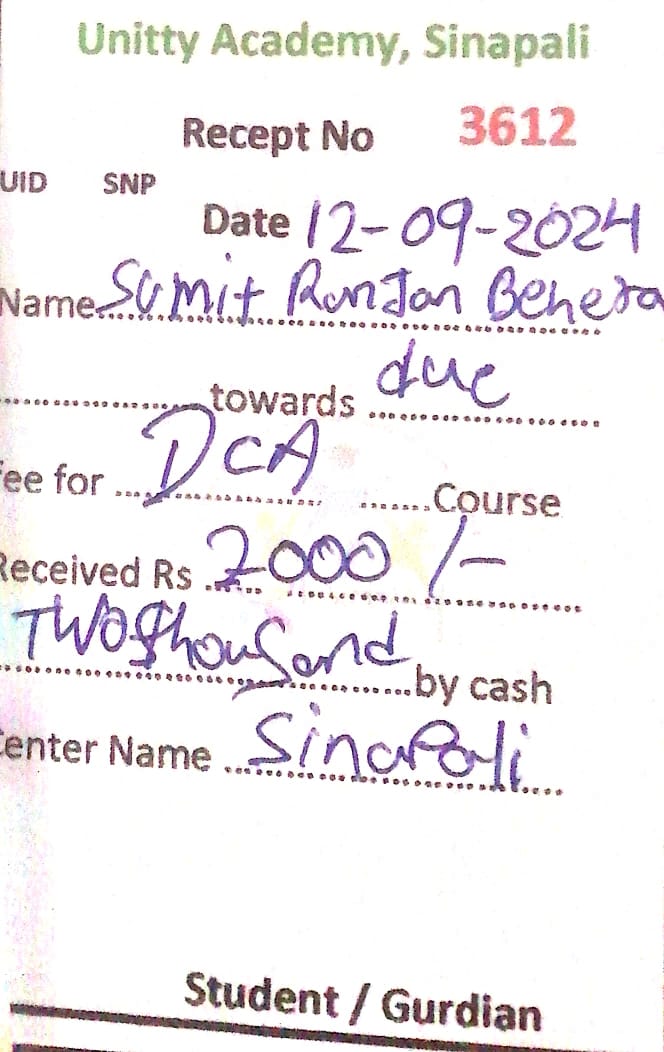 Unitty Academy, Sinapali
Recept No 3612
UID SNP
Date 12-09-2024
Name Sumit Ranjan Behera
towards due
ee for DCA Course
Received Rs 2000/-
Two thousand by cash
enter Name Sinapali
Student / Gurdian